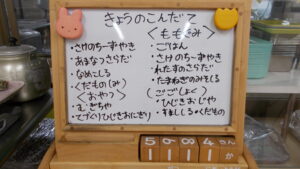 きょうのこんだて
・さけのちーずやき
・あまなつさらだ
・なめこしる
・くだもの(み)
〈おやつ〉
・むぎちゃ
・てづくりひじきおにぎり
〈ももぐみ〉
・ごはん
・さけのちーずやき
・れたすのさらだ
・たまねぎのみそしる
(ごごしょく)
・ひじきおじや
・すましじる・くだもの